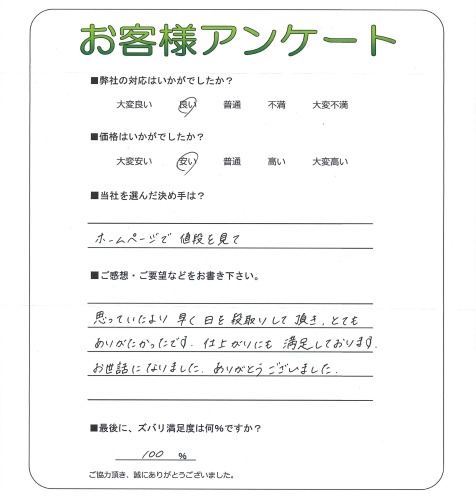 お客様アンケート
■弊社の対応はいかがでしたか？
大変良い 良い 普通 不満 大変不満
■価格はいかがでしたか？
大変安い 安い 普通 高い 大変高い
■当社を選んだ決め手は？
ホームページで 値段を見て
■ご感想・ご要望などをお書き下さい。
思っていたより 早く日を段取りして頂き、とても
ありがたかったです. 仕上がりにも 満足しております.
お世話になりました. ありがとうございました.
■最後に、ズバリ満足度は何％ですか？
100 %
ご協力頂き、誠にありがとうございました。